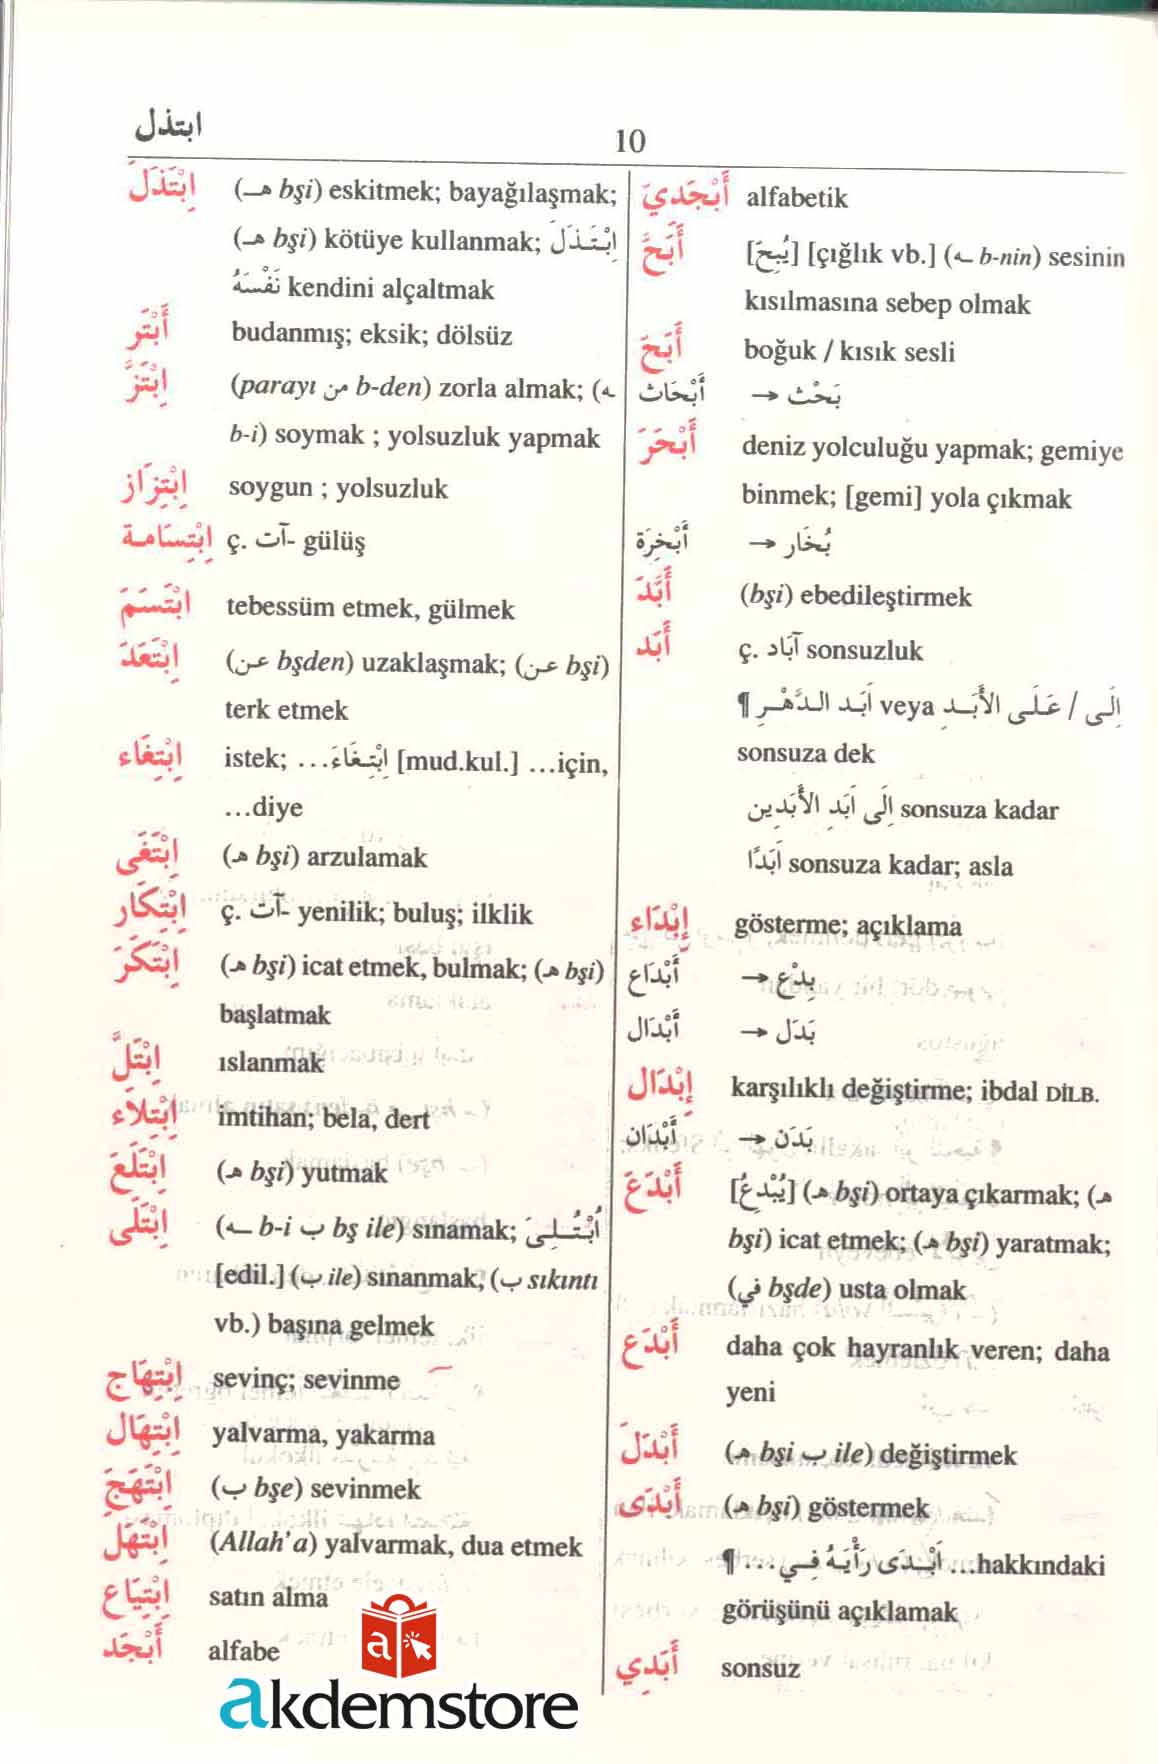 ابتذل
10
اِبْتَذَلَ (ـه bşi) eskitmek; bayağılaşmak;
(ـه bşi) kötüye kullanmak; اِبْتَذَلَ
نَفْسَهُ kendini alçaltmak
أَبْتَر budanmış; eksik; dölsüz
اِبْتَزَّ (parayı من b-den) zorla almak; (ـه
b-i) soymak ; yolsuzluk yapmak
اِبْتِزَاز soygun ; yolsuzluk
اِبْتِسَامة ç. آت- gülüş
اِبْتَسَمَ tebessüm etmek, gülmek
اِبْتَعَدَ (عن bşden) uzaklaşmak; (عن bşi)
terk etmek
اِبْتِغَاء istek; ...اِبْتِغَاءَ [mud.kul.] ...için,
...diye
اِبْتَغَى (ـه bşi) arzulamak
اِبْتِكَار ç. آت- yenilik; buluş; ilklik
اِبْتَكَرَ (ـه bşi) icat etmek, bulmak; (ـه bşi)
başlatmak
اِبْتَلَّ ıslanmak
اِبْتِلاَء imtihan; bela, dert
اِبْتَلَعَ (ـه bşi) yutmak
اِبْتَلَى (ـه b-i ب bş ile) sınamak; اُبْتُلِيَ
[edil.] (ب ile) sınanmak, (ب sıkıntı
vb.) başına gelmek
اِبْتِهَاج sevinç; sevinme
اِبْتِهَال yalvarma, yakarma
اِبْتَهَجَ (ب bşe) sevinmek
اِبْتَهَلَ (Allah'a) yalvarmak, dua etmek
اِبْتِيَاع satın alma
أَبْجَد alfabe
أَبْجَديّ alfabetik
أَبَحَّ [يُبِحّ] [çığlık vb.] (ـه b-nin) sesinin
kısılmasına sebep olmak
أَبَحّ boğuk / kısık sesli
أَبْحَاث → بَحْث
أَبْحَرَ deniz yolculuğu yapmak; gemiye
binmek; [gemi] yola çıkmak
أَبْخِرَة → بُخَار
أَبَّدَ (bşi) ebedileştirmek
أَبَد ç. آبَاد sonsuzluk
¶ إِلَى / عَلَى الأَبَد veya أَبَد الدَّهْرِ
sonsuza dek
إِلَى أَبَدِ الأَبَدِين sonsuza kadar
أَبَدًا sonsuza kadar; asla
إِبْدَاء gösterme; açıklama
أَبْدَاع → بِدْع
أَبْدَال → بَدَل
إِبْدَال karşılıklı değiştirme; ibdal DİLB.
أَبْدَان → بَدَن
أَبْدَعَ [يُبْدِعُ] (ـه bşi) ortaya çıkarmak; (ـه
bşi) icat etmek; (ـه bşi) yaratmak;
(في bşde) usta olmak
أَبْدَع daha çok hayranlık veren; daha
yeni
أَبْدَلَ (ـه bşi ب ile) değiştirmek
أَبْدَى (ـه bşi) göstermek
¶ أَبْدَى رَأْيَهُ فِي... ...hakkındaki
görüşünü açıklamak
أَبَدِي sonsuz
a
akdemstore